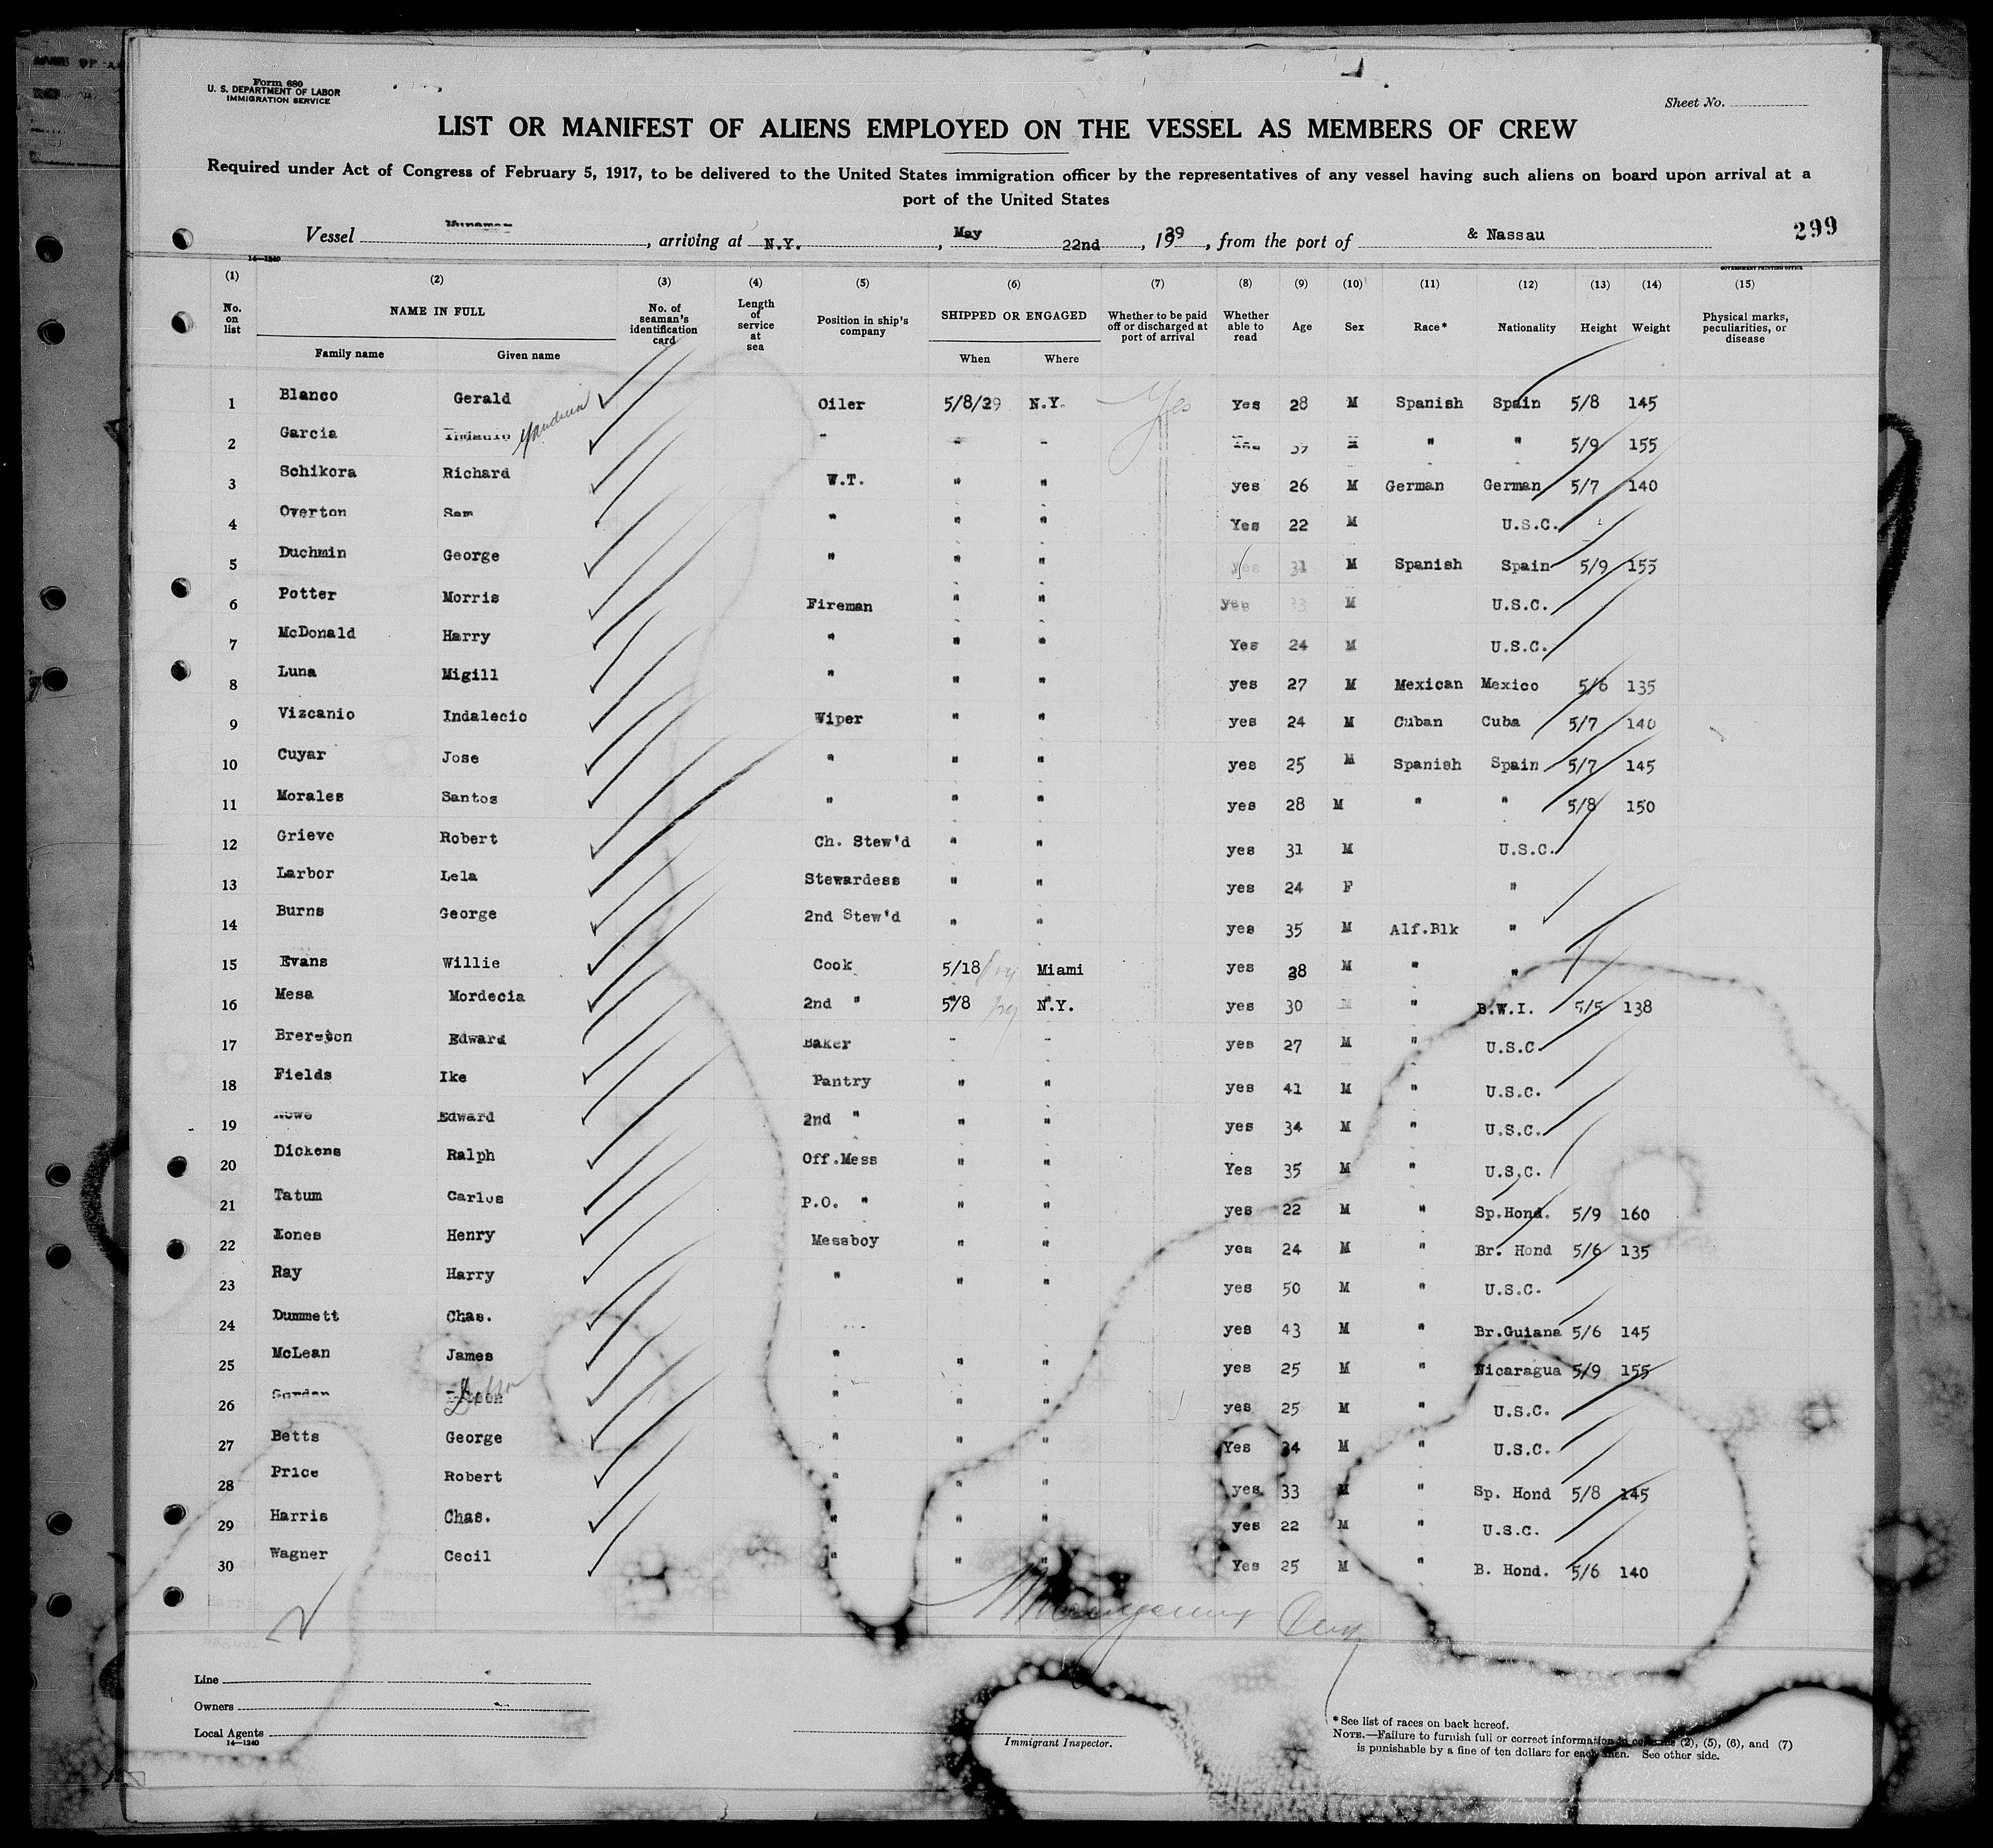 Form 680
U. S. DEPARTMENT OF LABOR
IMMIGRATION SERVICE
Sheet No.
LIST OR MANIFEST OF ALIENS EMPLOYED ON THE VESSEL AS MEMBERS OF CREW
Required under Act of Congress of February 5, 1917, to be delivered to the United States immigration officer by the representatives of any vessel having such aliens on board upon arrival at a
port of the United States
Vessel , arriving at N.Y. , May 22nd , 1929 , from the port of & Nassau 299
14—1240 GOVERNMENT PRINTING OFFICE
(1) (2) (3) (4) (5) (6) (7) (8) (9) (10) (11) (12) (13) (14) (15)
No. on list NAME IN FULL No. of seaman's identification card Length of service at sea Position in ship's company SHIPPED OR ENGAGED Whether to be paid off or discharged at port of arrival Whether able to read Age Sex Race* Nationality Height Weight Physical marks, peculiarities, or disease
Family name Given name When Where
1 Blanco Gerald Oiler 5/8/29 N.Y. Yes Yes 28 M Spanish Spain 5/8 145
2 Garcia " " 5/9 155
3 Schikora Richard W.T. " " yes 26 M German German 5/7 140
4 Overton Sam " " " Yes 22 M U.S.C.
5 Duchmin George " " " yes 31 M Spanish Spain 5/9 155
6 Potter Morris Fireman " " yes M U.S.C.
7 McDonald Harry " " " Yes 24 M U.S.C.
8 Luna Migill " " " yes 27 M Mexican Mexico 5/6 135
9 Vizcanio Indalecio Wiper " " yes 24 M Cuban Cuba 5/7 140
10 Cuyar Jose " " " yes 25 M Spanish Spain 5/7 145
11 Morales Santos " " " yes 28 M " " 5/8 150
12 Grieve Robert Ch. Stew'd " " yes 31 M U.S.C.
13 Larbor Lela Stewardess " " yes 24 F "
14 Burns George 2nd Stew'd " " yes 35 M Alf.Blk "
15 Evans Willie Cook 5/18 Miami yes 28 M " "
16 Mesa Mordecia 2nd " 5/8 N.Y. yes 30 M " B.W.I. 5/5 138
17 Brereton Edward Baker " " yes 27 M " U.S.C.
18 Fields Ike Pantry " " yes 41 M " U.S.C.
19 Edward 2nd " " " yes 34 M " U.S.C.
20 Dickens Ralph Off.Mess " " Yes 35 M " U.S.C.
21 Tatum Carlos P.O. " " " yes 22 M " Sp.Hond. 5/9 160
22 Henry Messboy " " yes 24 M " Br. Hond 5/6 135
23 Ray Harry " " " yes 50 M " U.S.C.
24 Dummett Chas. yes 43 M " Br.Guiana 5/6 145
25 McLean James " " " yes 25 M " Nicaragua 5/9 155
26 " " " yes 25 M " U.S.C.
27 Betts George " " " Yes 24 M " U.S.C.
28 Price Robert " " " yes 33 M " Sp. Hond 5/8 145
29 Harris Chas. " " " yes 22 M " U.S.C.
30 Wagner Cecil " " " Yes 25 M " B. Hond. 5/6 140
Line
Owners
Local Agents
14—1240
Immigrant Inspector.
*See list of races on back hereof.
NOTE.—Failure to furnish full or correct information in columns (2), (5), (6), and (7)
is punishable by a fine of ten dollars for each alien. See other side.